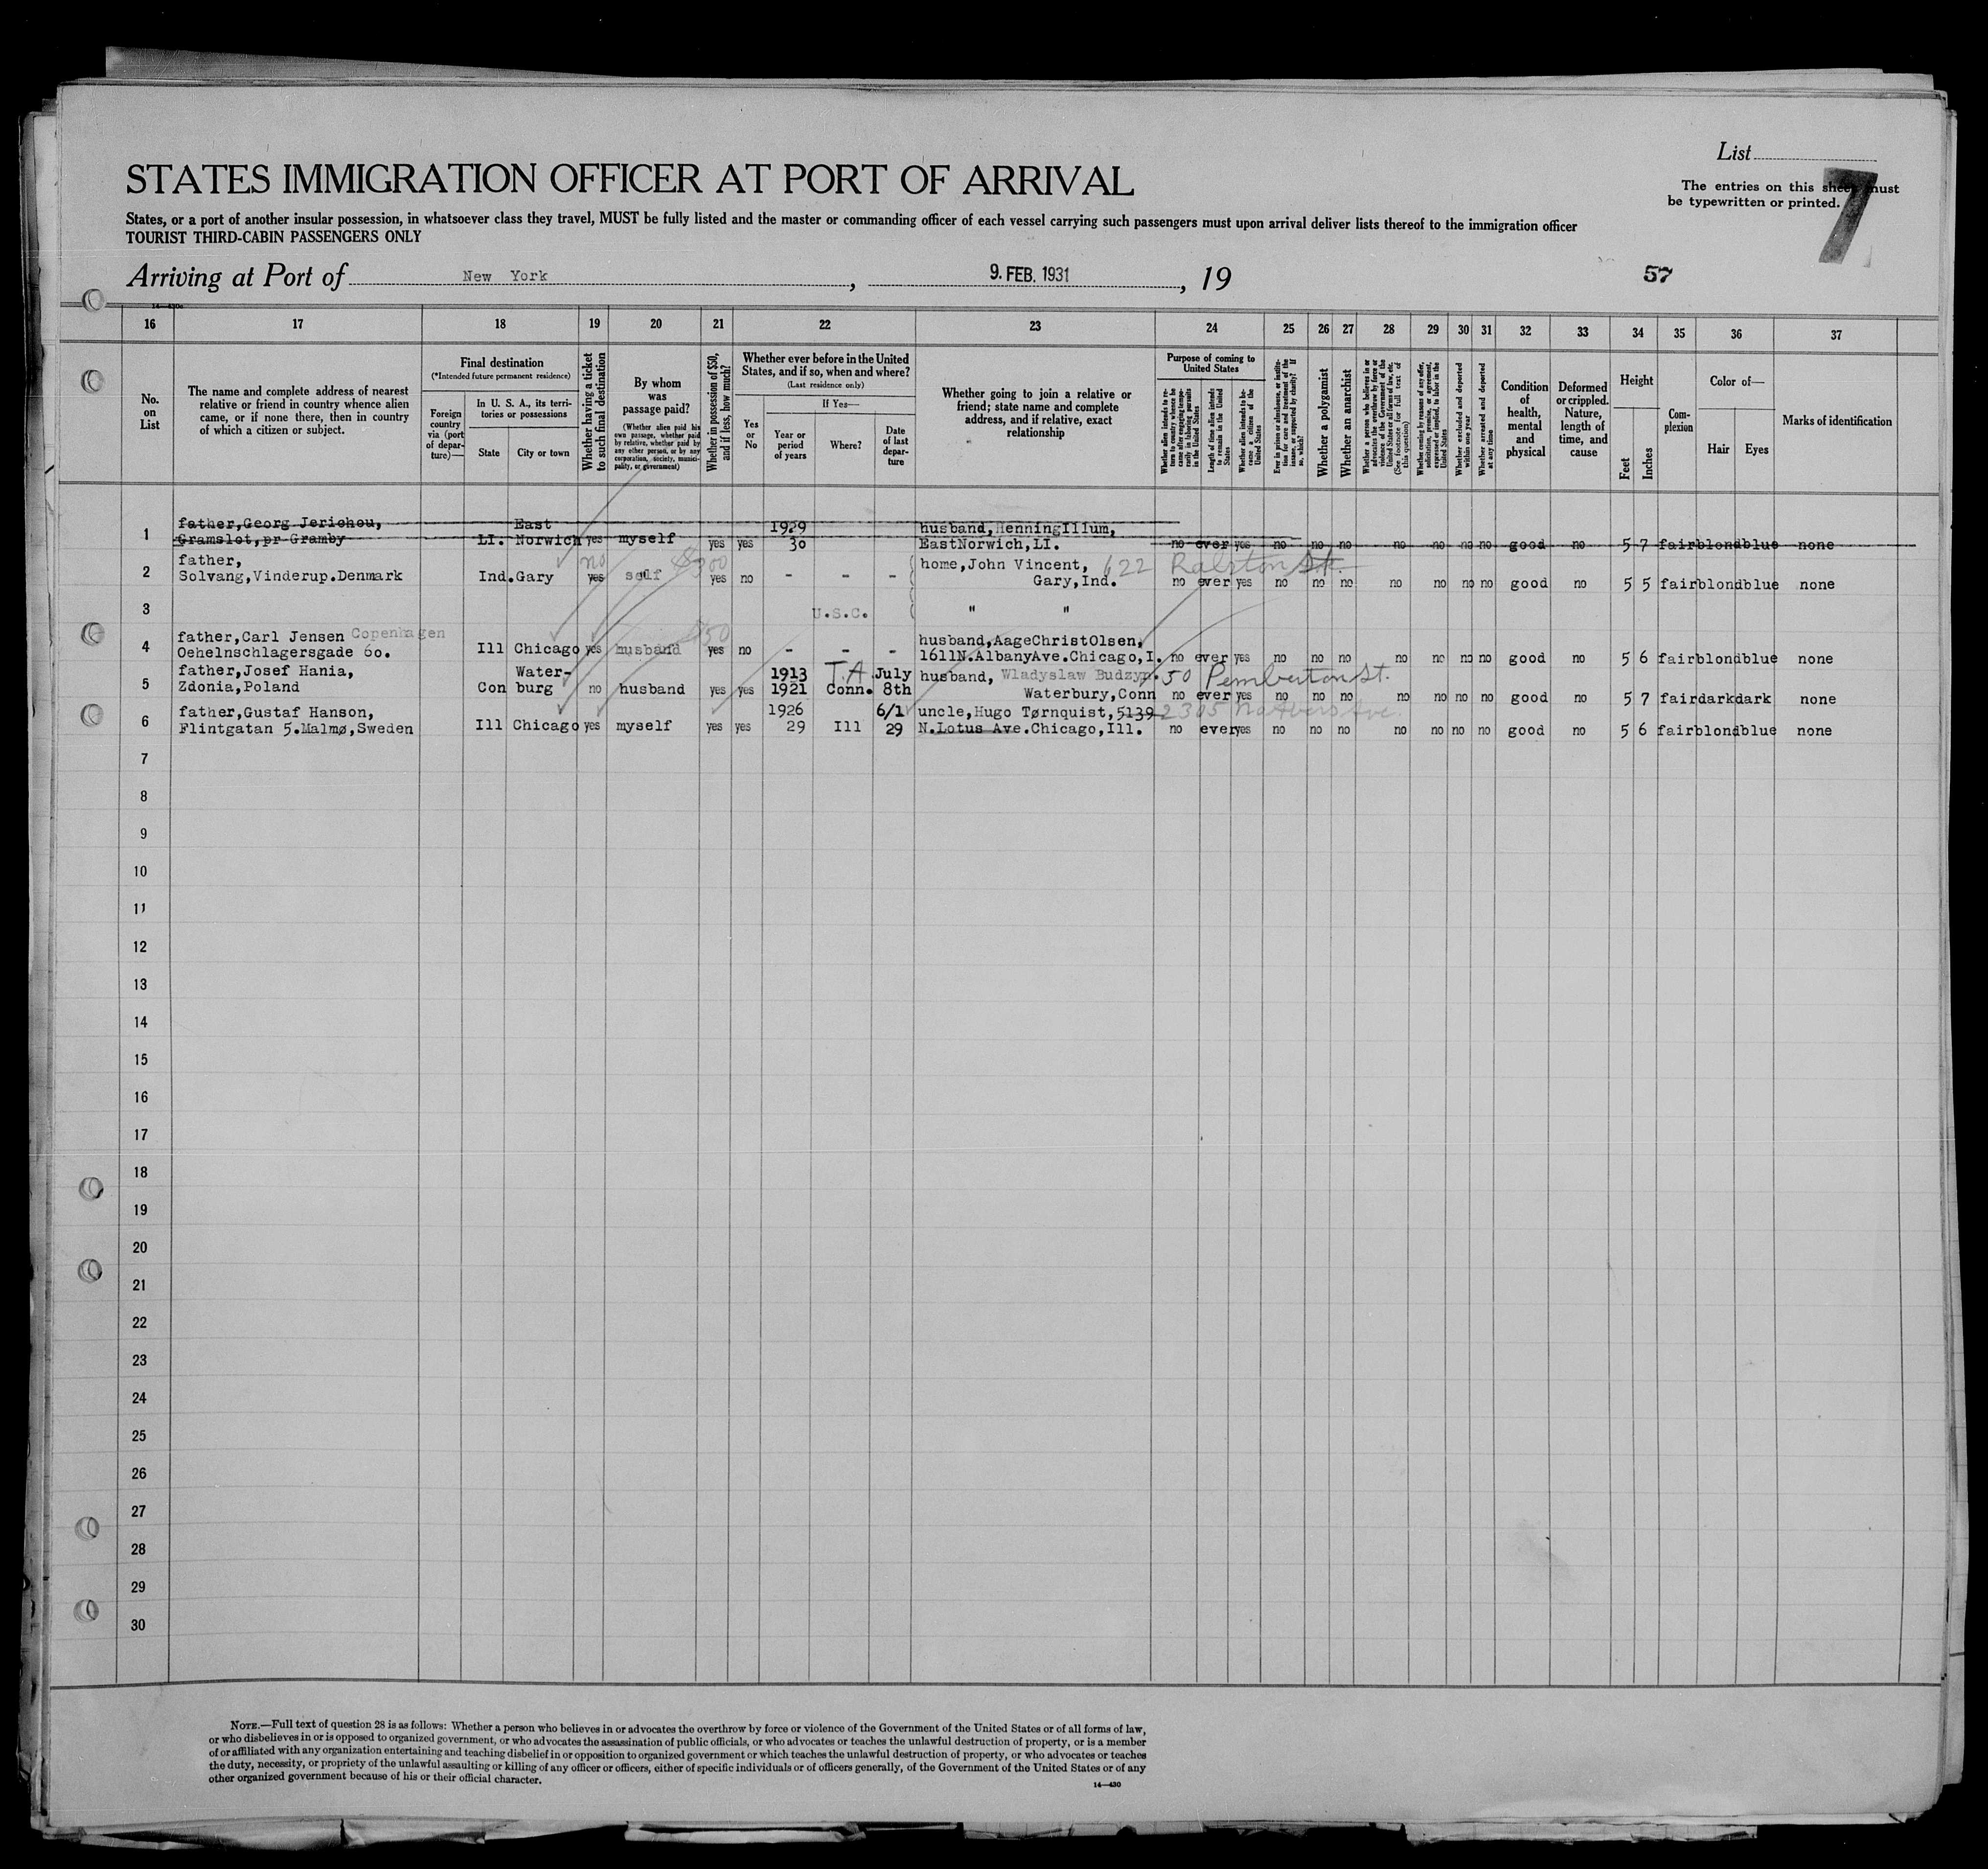 List
The entries on this sheet must
be typewritten or printed.
7
STATES IMMIGRATION OFFICER AT PORT OF ARRIVAL
States, or a port of another insular possession, in whatsoever class they travel, MUST be fully listed and the master or commanding officer of each vessel carrying such passengers must upon arrival deliver lists thereof to the immigration officer
TOURIST THIRD-CABIN PASSENGERS ONLY
Arriving at Port of New York, 9. FEB. 1931, 19
57
16 17 18 19 20 21 22 23 24 25 26 27 28 29 30 31 32 33 34 35 36 37
No. on List
The name and complete address of nearest
relative or friend in country whence alien
came, or if none there, then in country
of which a citizen or subject.
Final destination
(*Intended future permanent residence)
Foreign country via (port of departure)—
In U. S. A., its territories or possessions
State
City or town
Whether having a ticket to such final destination
By whom was passage paid?
(Whether alien paid his own passage, whether paid by relative, whether paid by any other person, or by any corporation, society, municipality, or government)
Whether in possession of $50, and if less, how much?
Whether ever before in the United States, and if so, when and where?
(Last residence only)
Yes or No
If Yes—
Year or period of years
Where?
Date of last departure
Whether going to join a relative or
friend; state name and complete
address, and if relative, exact
relationship
Purpose of coming to United States
Length of time alien intends to remain in the United States
Whether alien intends to become a citizen of the United States
Whether a polygamist
Whether an anarchist
Whether excluded and deported within one year
Whether arrested and deported at any time
Condition of health, mental and physical
Deformed or crippled. Nature, length of time, and cause
Height
Feet
Inches
Complexion
Color of—
Hair
Eyes
Marks of identification
1 father,Georg Jerichou, East 1929 husband,HenningIllum,
Gramslot,pr Gramby LI. Norwich yes myself yes yes 30 EastNorwich,LI. no ever yes no no no no no no no good no 5 7 fair blond blue none
2 father, no $300 home,John Vincent, 622 Ralston St.
Solvang,Vinderup.Denmark Ind. Gary yes self yes no - - - Gary,Ind. no ever yes no no no no no no no good no 5 5 fair blond blue none
3 U.S.C. " "
4 father,Carl Jensen Copenhagen $50 husband,AageChristOlsen,
Oehelnschlagersgade 60. Ill Chicago yes husband yes no - - - 1611N.AlbanyAve.Chicago,I. no ever yes no no no no no no no good no 5 6 fair blond blue none
5 father,Josef Hania, Water- 1913 T.A. July husband, Wladyslaw Budzyn. 50 Pemberton St.
Zdonia,Poland Con burg no husband yes yes 1921 Conn. 8th Waterbury,Conn no ever yes no no no no no no no good no 5 7 fair dark dark none
6 father,Gustaf Hanson, 1926 6/1 uncle,Hugo Tørnquist,5139 2305
Flintgatan 5.Malmø,Sweden Ill Chicago yes myself yes yes 29 Ill 29 N.Lotus Ave.Chicago,Ill. no ever yes no no no no no no no good no 5 6 fair blond blue none
7
8
9
10
11
12
13
14
15
16
17
18
19
20
21
22
23
24
25
26
27
28
29
30
NOTE.—Full text of question 28 is as follows: Whether a person who believes in or advocates the overthrow by force or violence of the Government of the United States or of all forms of law,
or who disbelieves in or is opposed to organized government, or who advocates the assassination of public officials, or who advocates or teaches the unlawful destruction of property, or is a member
of or affiliated with any organization entertaining and teaching disbelief in or opposition to organized government or which teaches the unlawful destruction of property, or who advocates or teaches
the duty, necessity, or propriety of the unlawful assaulting or killing of any officer or officers, either of specific individuals or of officers generally, of the Government of the United States or of any
other organized government because of his or their official character.
14—430